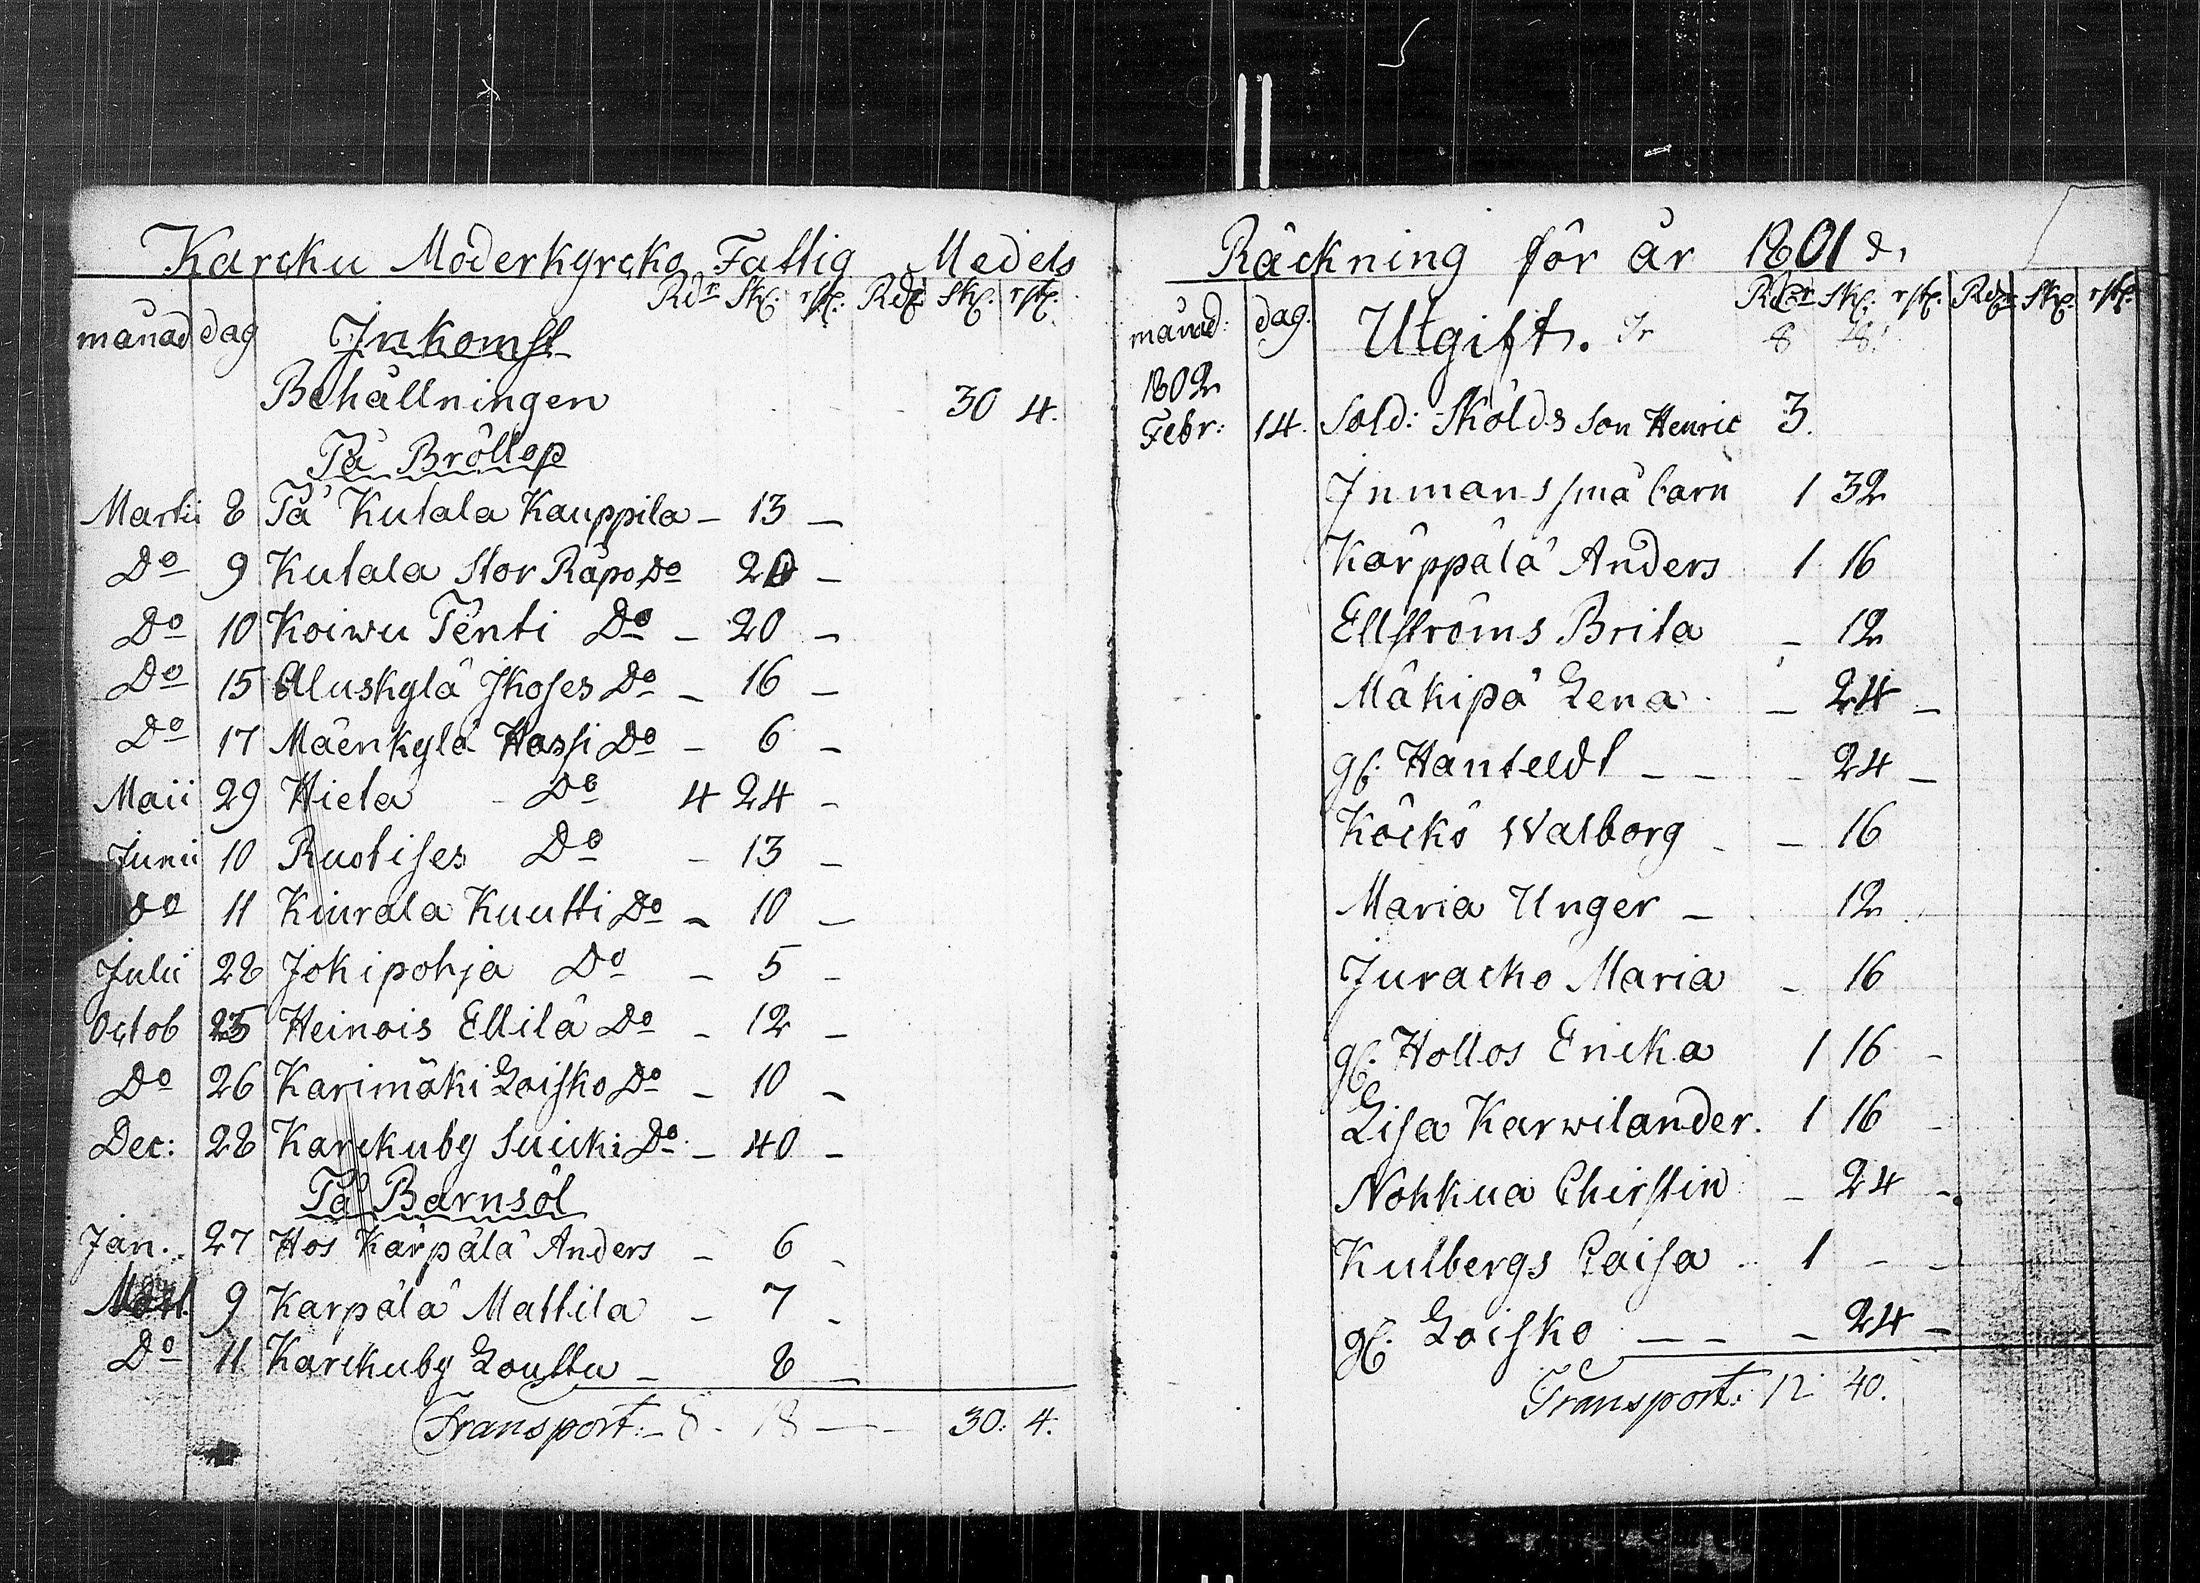 Karcku Moderkyrcko Fattig Medels
Rdr Sk: rst: Rdr Sk: rst:
månad dag Inkomst
Behållningen 30 4.
På Bröllop
Martii 8 På Kutala Kauppila – 13 –
Do 9 Kutala Stor Räpo Do 20 –
Do 10 Koiwu Penti Do – 20 –
Do 15 Aluskylä Ikoses Do – 16 –
Do 17 Mäenkylä Hassi Do – 6 –
Maii 29 Hieta Do 4 24 –
Junii 10 Ruotises Do – 13 –
Do 11 Kiurala Kuutti Do – 10 –
Julii 28 Jokipohja Do – 5 –
Octob 25 Heinois Ellilä Do – 12 –
Do 26 Karimäki Loisko Do – 10 –
Dec: 28 Karckuby Suicki Do – 40 –
På Barnsöl
Jan. 27 Hos Kärpälä Anders – 6 –
Mart. 9 Karpälä Mattila – 7 –
Do 11 Karckuby Louttu – 8 –
Transport: – 8 – 18 – – 30: 4.
Räckning för år 1801
Rdr Sk: rst: Rdr Sk: rst:
månad: dag. Utgift. 8 18
1802
Febr: 14. Sold: Skölds Son Henric 3.
Inmans små barn 1 32
Kärppälä Anders 1 16
Ellströms Brita – 12
Mäkipä Lena – 24 –
gl. Hanteldt – – – 24 –
Köckö Walborg – – 16
Maria Unger – 12
Juracko Maria – 16
gl. Hollos Ericka 1 16 –
Lisa Karwilander. 1 16 –
Nohkua Chirstin – 24 –
Kulbergs Caisa 1 – –
gl. Loisko – – – 24 –
Transport: 12 40.